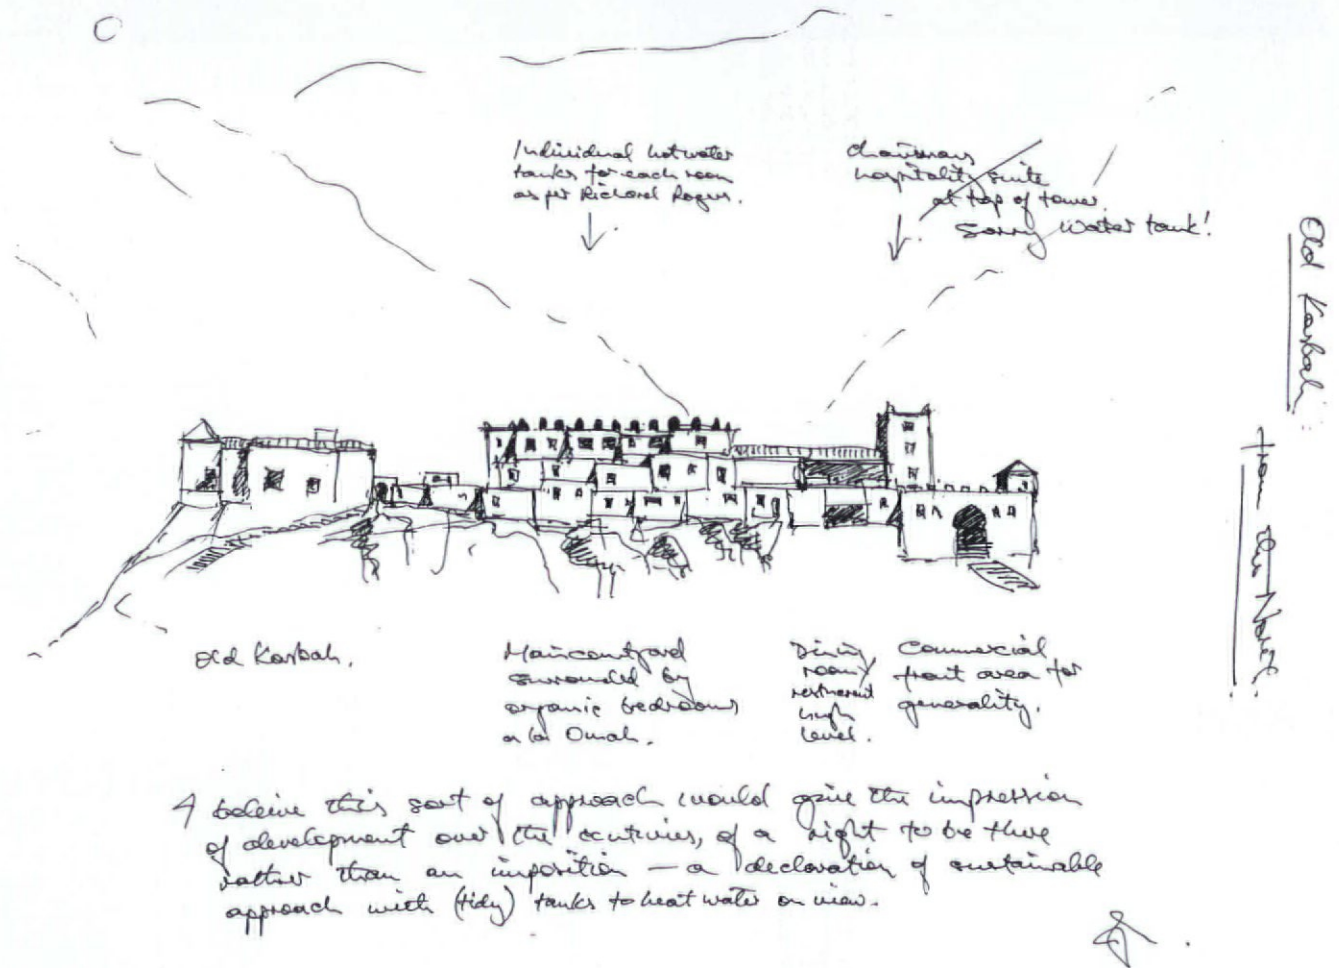 Individual hot water
tanks for each room
as per Richard Rogers.
Chairmans
hospitality suite
at top of tower.
Sorry Water tank!
Old Kasbah.
from the North.
Old Kasbah.
Main courtyard
surrounded by
organic bedrooms
a la Omah.
Dining
room
restaurant
high
level.
Commercial
front area for
generality.
I beleive this sort of approach would give the impression
of development over the centuries, of a right to be there
rather than an imposition — a declaration of sustainable
approach with (tidy) tanks to heat water on view.